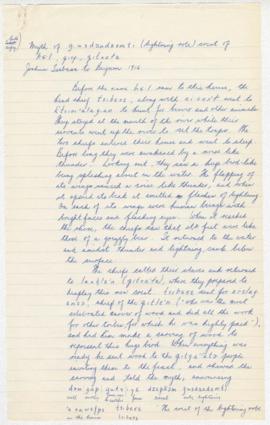 Myth of (lightning robe) crest of
Joshua Tsibasa to Beynon 1916
Before the name was seen to this house, the
head chief tsibasa, along with went to
to hunt for bears and other animals.
They stayed at the mouth of the river while their
servants went up the river to set the traps. The
two chiefs entered their house and went to sleep.
Before long they were awakened by a noise like
thunder. Looking out, they saw a huge bird-like
being splashing about on the water. The flapping of
its wings caused a noise like thunder, and when
it opened its beak it emitted flashes of lightning.
On each of its wings were human beings with
bright faces and flashing eyes. When it reached
the shore, the chiefs saw that its feet were like
those of a grizzly bear. It returned to the water
and amidst thunder and lightning, sank below
the surface.
The chiefs called their slaves and returned
to (gitxała), where they prepared to
display this new crest. tsibasa sent for
chief of the ("who was the most
celebrated carver of wood and did all the work
for other tribes for which he was highly paid"),
and had him made a drawing of wood to
represent this huge bird. When everything was
ready he sent word to the people
inviting them to the feast, and showed the
carving and told the myth, announcing
tsibasa "The crest of the lightning robe
in the house tsibasa